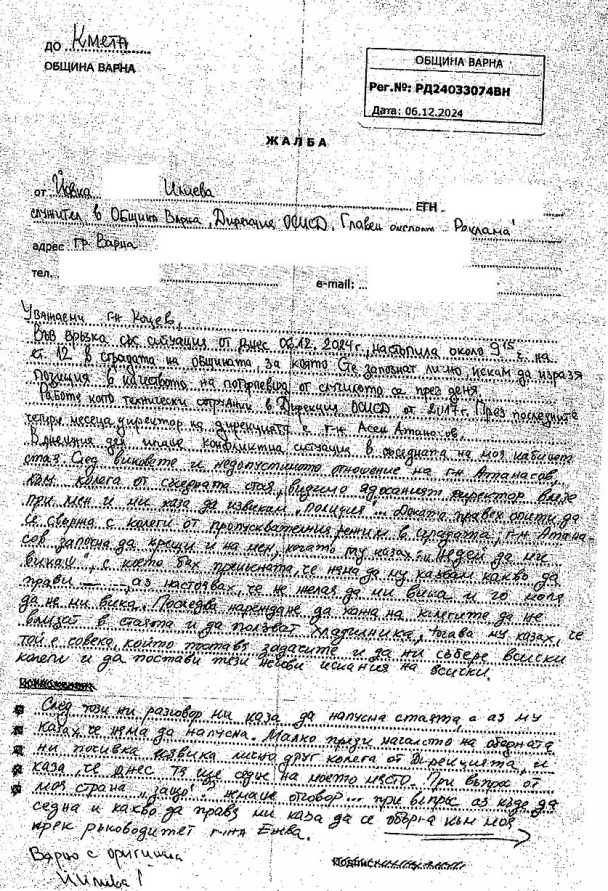 ДО Кмета
ОБЩИНА ВАРНА
ОБЩИНА ВАРНА
Рег.№: РД24033074ВН
Дата: 06.12.2024
ЖАЛБА
от Йовка Илиева ЕГН
служител в Община Варна, Дирекция ОСИСД, Главен експерт "Реклама"
адрес гр Варна
тел. e-mail:
Уважаеми г-н Коцев,
Във връзка със ситуация от днес 06.12.2024г., настъпила около 9 15 ч. на
ет. 12 в сградата на общината, за която сте запознат лично, искам да изразя
позиция в качеството на потърпевш от случилото се през деня.
Работя като технически сътрудник в Дирекция ОСИСД от 2017г. През последните
четири месеца директор на дирекцията е г-н Асен Атанасов.
В днешния ден имаше конфликтна ситуация в съседната на моя кабинет
стая. След виковете и недопустимото отношение на г-н Атанасов,
към колега от съседната стая, видимо ядосаният директор влезе
при мен и ми каза да извикам "полиция"... Докато правех опити да
се свържа с колеги от пропускателния режим в сградата, г-н Атана-
сов започна да крещи и на мен, когато му казах: "Недей да ми
викаш", с което бях прекъсната, че няма да му казвам какво да
прави, аз настоявах, че не желая да ми вика и го моля
да не ми вика. Последва нареждане да кажа на колегите да не
влизат в стаята и да ползват хладилника, тогава му казах, че
той е човека, който поставя задачите и да ни събере всички
колеги и да постави тези негови искания на всички.
След този ни разговор ми каза да напусна стаята, а аз му
казах, че няма да напусна. Малко преди началото на обедната
ни почивка извика лично друг колега от Дирекцията, и
каза, че днес тя ще седне на моето място. При въпрос от
моя страна "защо?" нямаше отговор... при въпрос аз къде да
седна и какво да правя ми каза да се обърна към моя
пряк ръководител г-жа Енева.
Вярно с оригинала
Илиева!